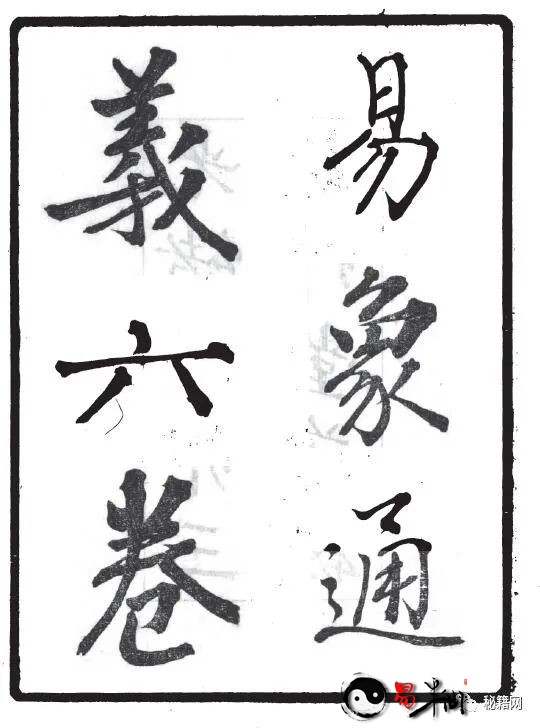 易象通
義六卷
易
秘籍网